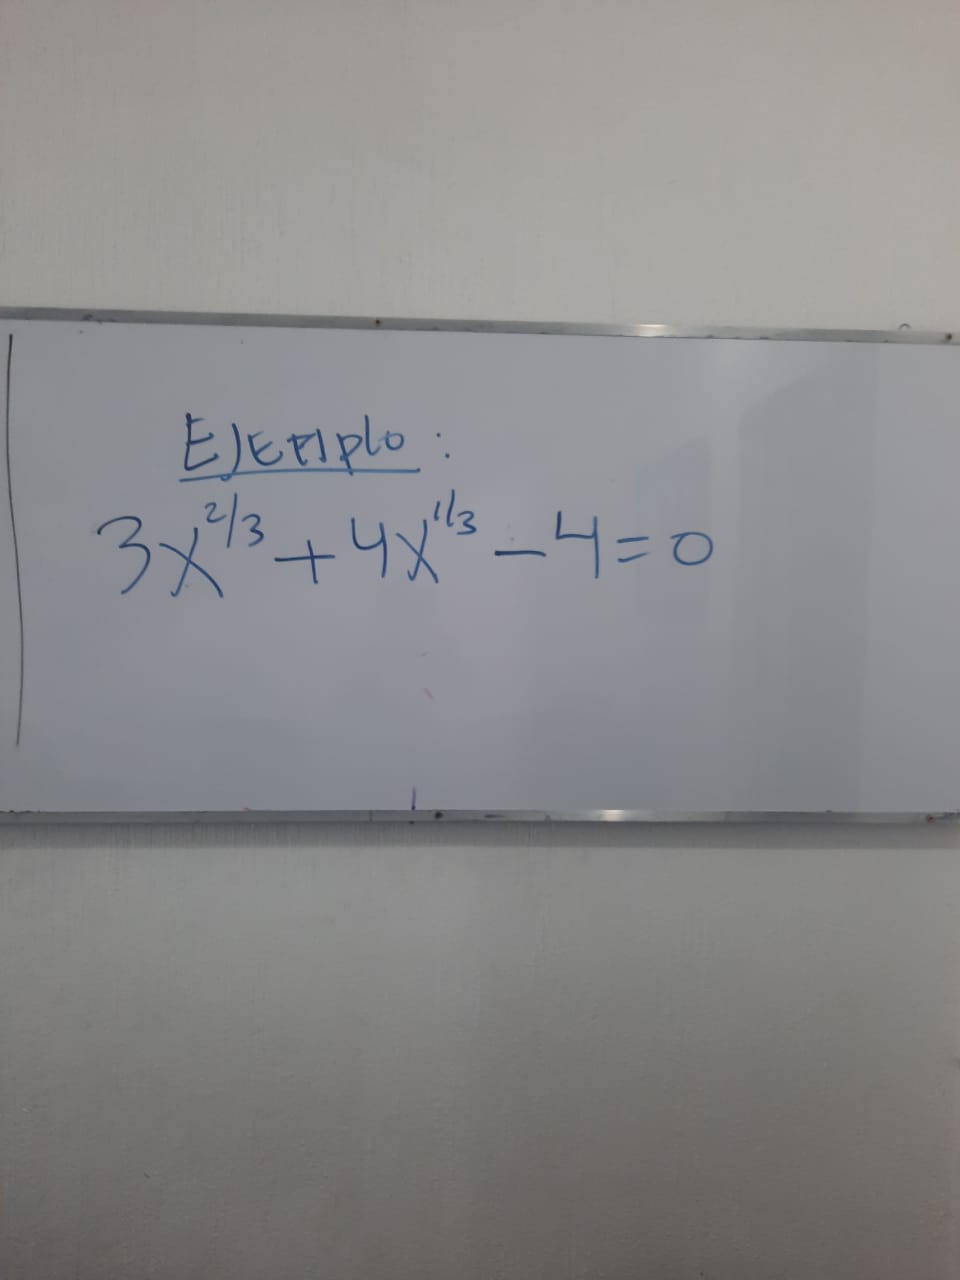 EJEMplo:
3x^2/3 + 4x^1/3 - 4 = 0